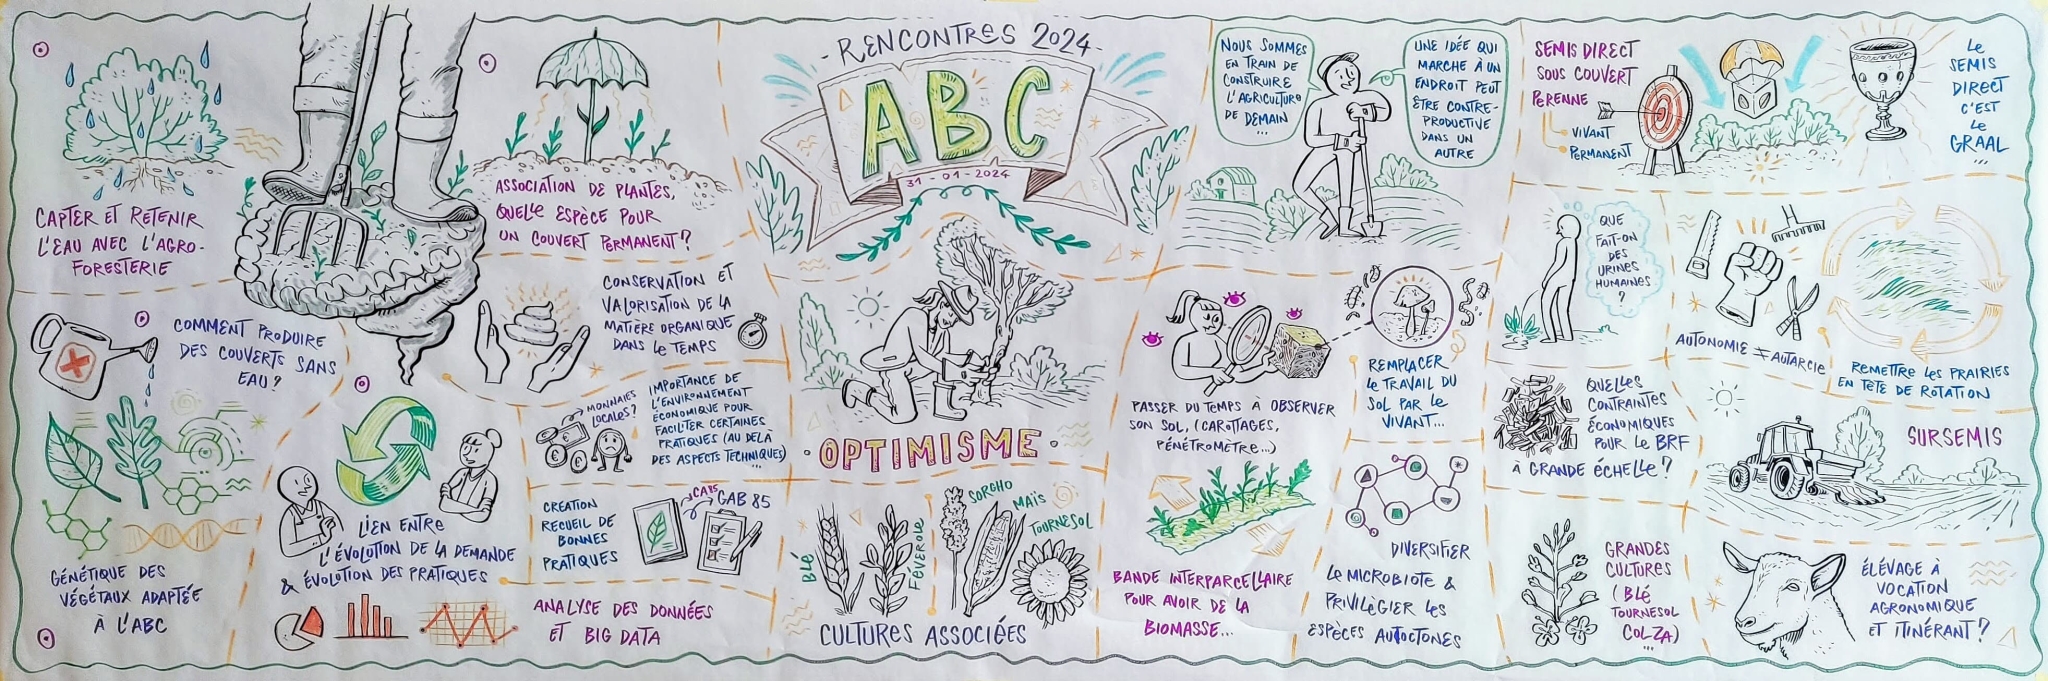 RENCONTRES 2024
ABC
31-01-2024
CAPTER ET RETENIR
L'EAU AVEC L'AGRO-
FORESTERIE
ASSOCIATION DE PLANTES,
QUELLE ESPÈCE POUR
UN COUVERT PERMANENT?
NOUS SOMMES
EN TRAIN DE
CONSTRUIRE
L'AGRICULTURE
DE DEMAIN
...
UNE IDÉE QUI
MARCHE À UN
ENDROIT PEUT
ÊTRE CONTRE-
PRODUCTIVE
DANS UN
AUTRE
SEMIS DIRECT
SOUS COUVERT
PERENNE
VIVANT
PERMANENT
LE
SEMIS
DIRECT
C'EST
LE
GRAAL
...
COMMENT PRODUIRE
DES COUVERTS SANS
EAU?
CONSERVATION ET
VALORISATION DE LA
MATIÈRE ORGANIQUE
DANS LE TEMPS
MONNAIES
LOCALES?
IMPORTANCE DE
L'ENVIRONNEMENT
ÉCONOMIQUE POUR
FACILITER CERTAINES
PRATIQUES (AU DELÀ
DES ASPECTS TECHNIQUES)
...
OPTIMISME
PASSER DU TEMPS À OBSERVER
SON SOL, (CAROTTAGES,
PÉNÉTROMÈTRE...)
REMPLACER
LE TRAVAIL DU
SOL PAR LE
VIVANT...
QUE
FAIT-ON
DES
URINES
HUMAINES
?
AUTONOMIE ≠ AUTARCIE
REMETTRE LES PRAIRIES
EN TETE DE ROTATION
QUELLES
CONTRAINTES
ÉCONOMIQUES
POUR LE BRF
À GRANDE ÉCHELLE?
SURSEMIS
GÉNÉTIQUE DES
VÉGÉTAUX ADAPTÉE
À L'ABC
LIEN ENTRE
L'ÉVOLUTION DE LA DEMANDE
& ÉVOLUTION DES PRATIQUES
CREATION
RECUEIL DE
BONNES
PRATIQUES
CA85
GAB 85
ANALYSE DES DONNÉES
ET BIG DATA
BLÉ
FÉVEROLE
SORGHO
MAÏS
TOURNESOL
CULTURES ASSOCIÉES
BANDE INTERPARCELLAIRE
POUR AVOIR DE LA
BIOMASSE...
DIVERSIFIER
LE MICROBIOTE &
PRIVILÉGIER LES
ESPÈCES AUTOCTONES
GRANDES
CULTURES
(BLÉ
TOURNESOL
COLZA)
...
ÉLEVAGE À
VOCATION
AGRONOMIQUE
ET ITINÉRANT?